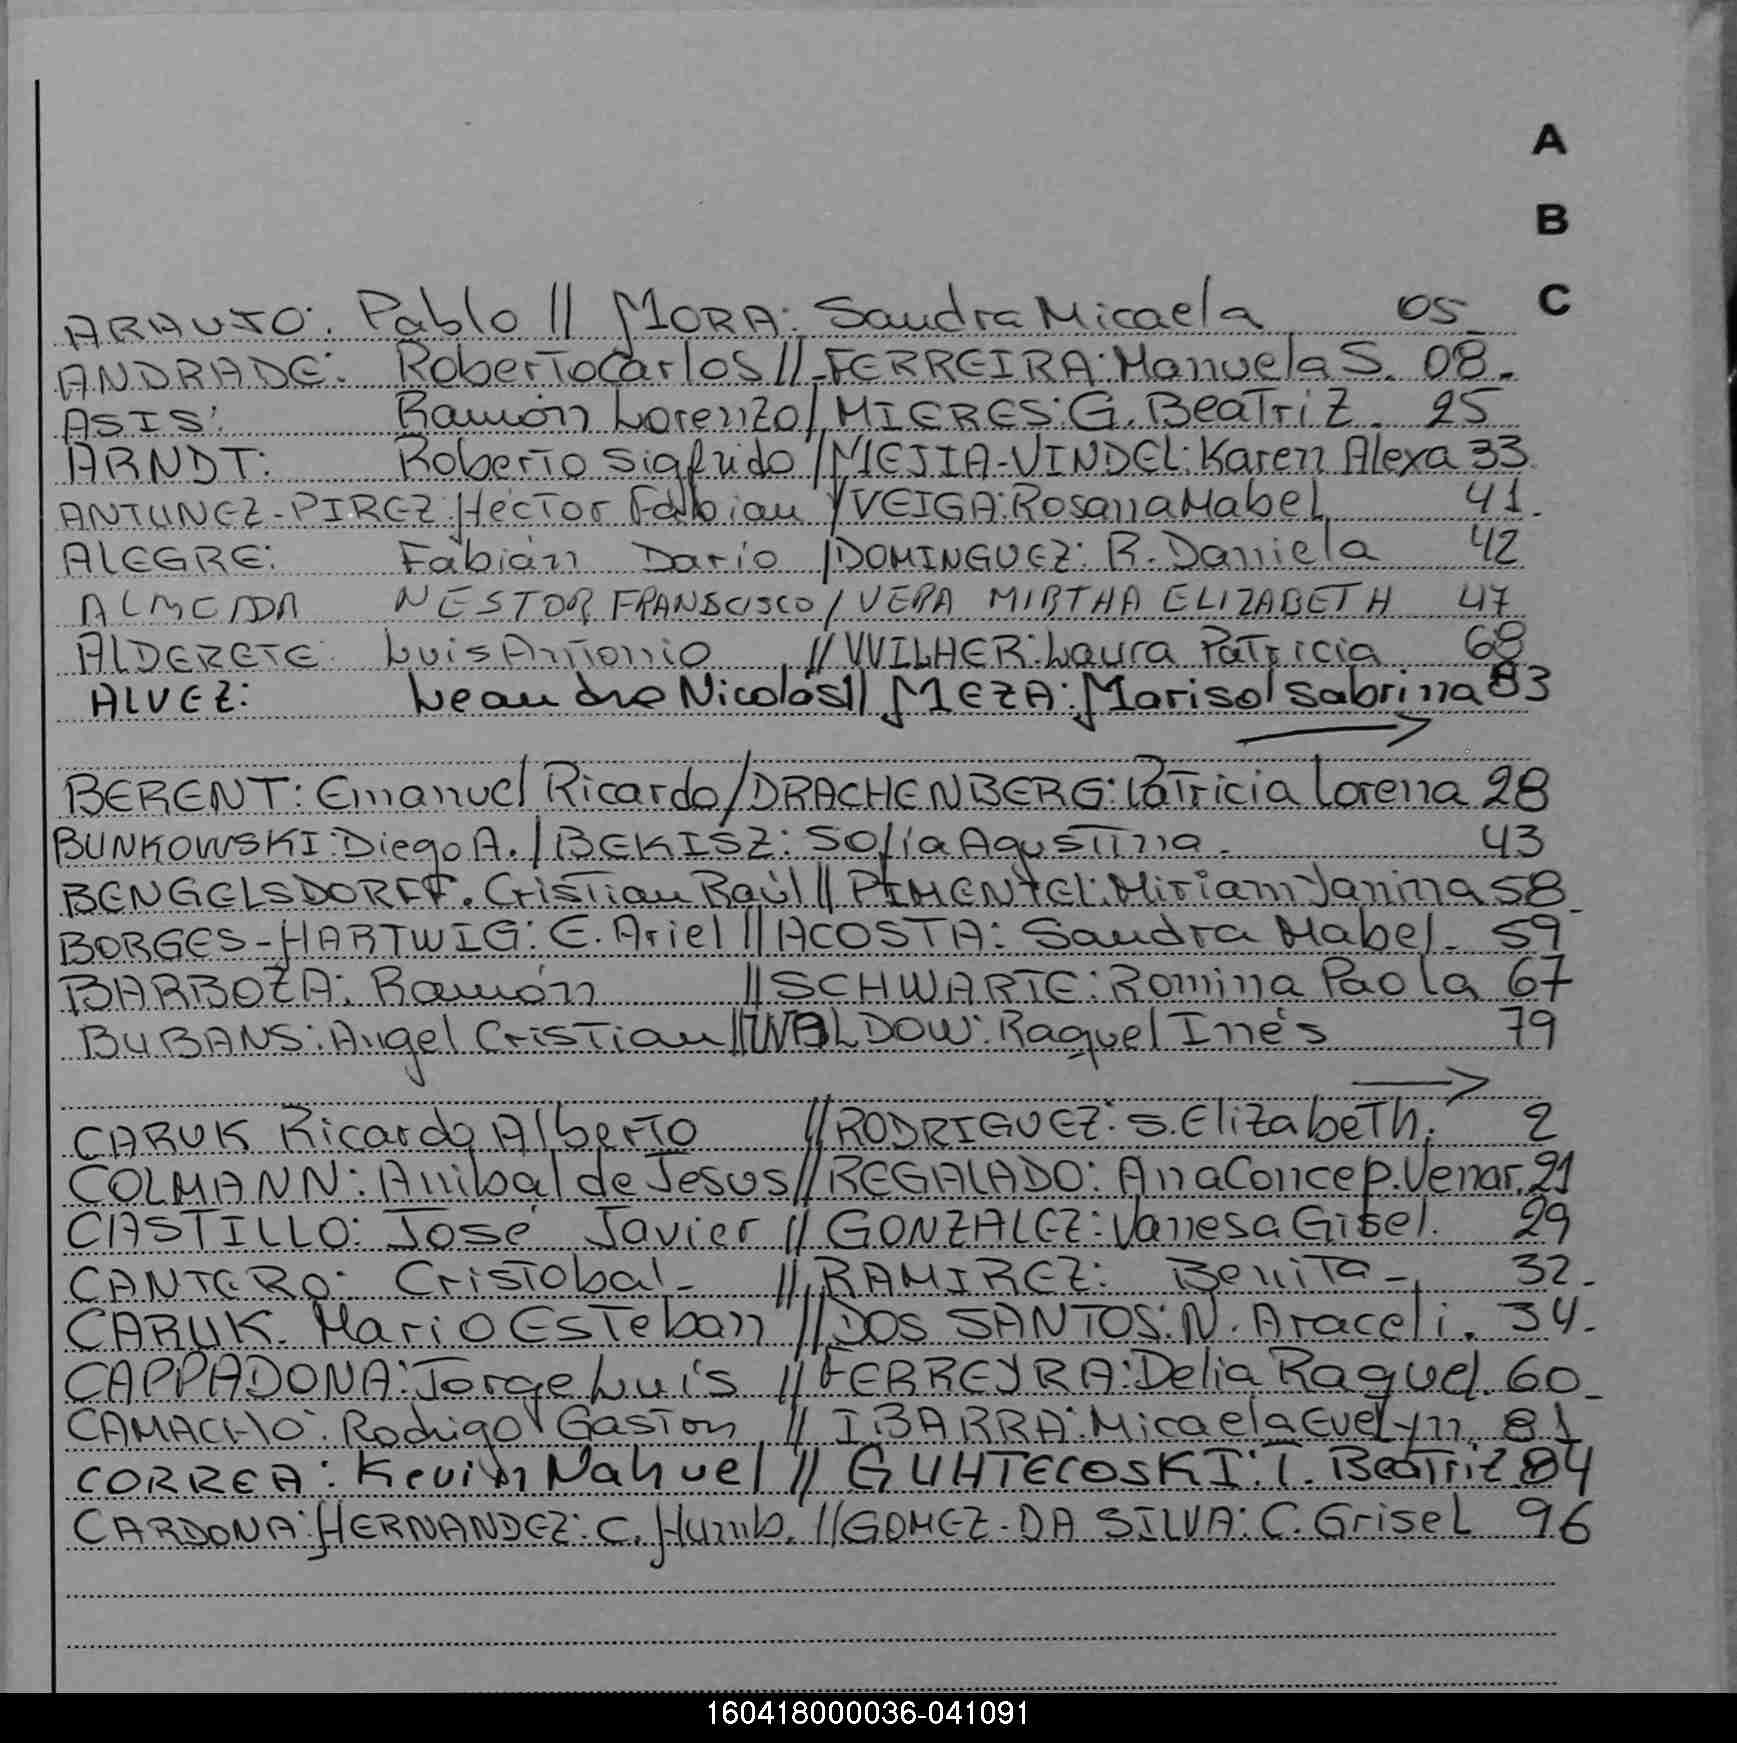 A
B
C
ARAUJO: Pablo // MORA: Sandra Micaela 05
ANDRADE: Roberto Carlos // FERREIRA: Manuela S. 08.
ASIS: Ramón Lorenzo / MIERES: G. Beatriz. 25
ARNDT: Roberto Sigfrido / MEJIA-VINDEL: Karen Alexa 33
ANTUNEZ-PIREZ: Héctor Fabian / VEIGA: Rosana Mabel 41.
ALEGRE: Fabián Dario / DOMINGUEZ: R. Daniela 42
ALMEIDA NESTOR FRANSCISCO / VERA MIRTHA ELIZABETH 47
ALDERETE: Luis Antonio // WILHER: Laura Patricia 68
ALVEZ: Leandro Nicolás // MEZA: Marisol Sabrina 83
BERENT: Emanuel Ricardo / DRACHENBERG: Patricia Lorena 28
BUNKOWSKI: Diego A. / BEKISZ: Sofía Agustina. 43
BENGELSDORFF. Cristian Raúl // PIMENTEL: Miriam Yanina 58
BORGES-HARTWIG: E. Ariel // ACOSTA: Sandra Mabel. 59
BARBOZA: Ramón // SCHWARTE: Romina Paola 67
BUBANS: Angel Cristian // WALDOW: Raquel Inés 79
CARUK Ricardo Alberto // RODRIGUEZ: S. Elizabeth. 2
COLMANN: Anibal de Jesus // REGALADO: Ana Concep. Venar. 21
CASTILLO: José Javier // GONZALEZ: Vanesa Gisel. 29
CANTERO: Cristobal - // RAMIREZ: Benita - 32.
CARUK. Mario Esteban // DOS SANTOS: N. Araceli. 34.
CAPPADONA: Jorge Luis // FERREYRA: Delia Raquel. 60
CAMACHO: Rodrigo Gaston // IBARRA: Micaela Evelyn. 81
CORREA: Kevin Nahuel // GUHTECOSKI: T. Beatriz 84
CARDONA: HERNANDEZ: C. Humb. // GOMEZ-DA SILVA: C. Grisel 96
160418000036-041091